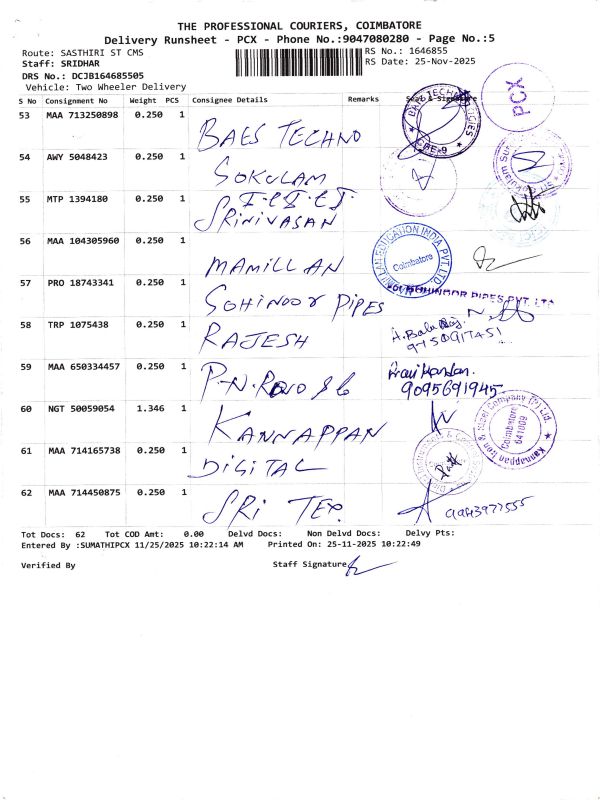 THE PROFESSIONAL COURIERS, COIMBATORE
Delivery Runsheet - PCX - Phone No.:9047080280 - Page No.:5
Route: SASTHIRI ST CMS
RS No.: 1646855
Staff: SRIDHAR
RS Date: 25-Nov-2025
DRS No.: DCJB164685505
Vehicle: Two Wheeler Delivery
S No Consignment No Weight PCS Consignee Details Remarks Seal & Signature
53 MAA 713250898 0.250 1 BAES TECHNO
PCX
54 AWY 5048423 0.250 1 GOKULAM
55 MTP 1394180 0.250 1 SRINIVASAN
56 MAA 104305960 0.250 1 MAMILLAN
Coimbatore
57 PRO 18743341 0.250 1 SOHINOOR PIPES
SOHINOOR PIPES PVT. LTD
58 TRP 1075438 0.250 1 RAJESH
59 MAA 650334457 0.250 1 P.N.RAO
9095691945
60 NGT 50059054 1.346 1 KANNAPPAN
Kannappan Iron & Steel Company (P) Ltd
Coimbatore
641009
61 MAA 714165738 0.250 1 DIGITAL
62 MAA 714450875 0.250 1 SRI TEX
9943977555
Tot Docs: 62 Tot COD Amt: 0.00 Delvd Docs: Non Delvd Docs: Delvy Pts:
Entered By :SUMATHIPCX 11/25/2025 10:22:14 AM Printed On: 25-11-2025 10:22:49
Verified By Staff Signature